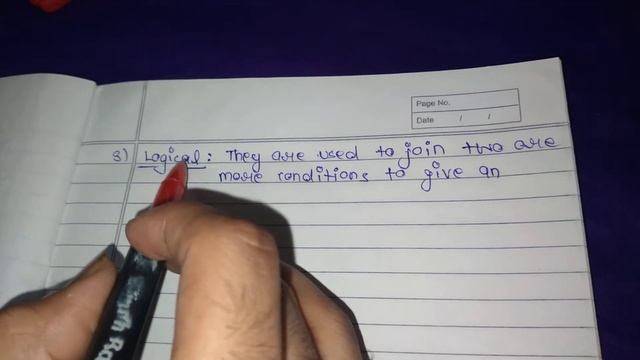 Page No.
Date / /
3) Logical : They are used to join two are
more conditions to give an